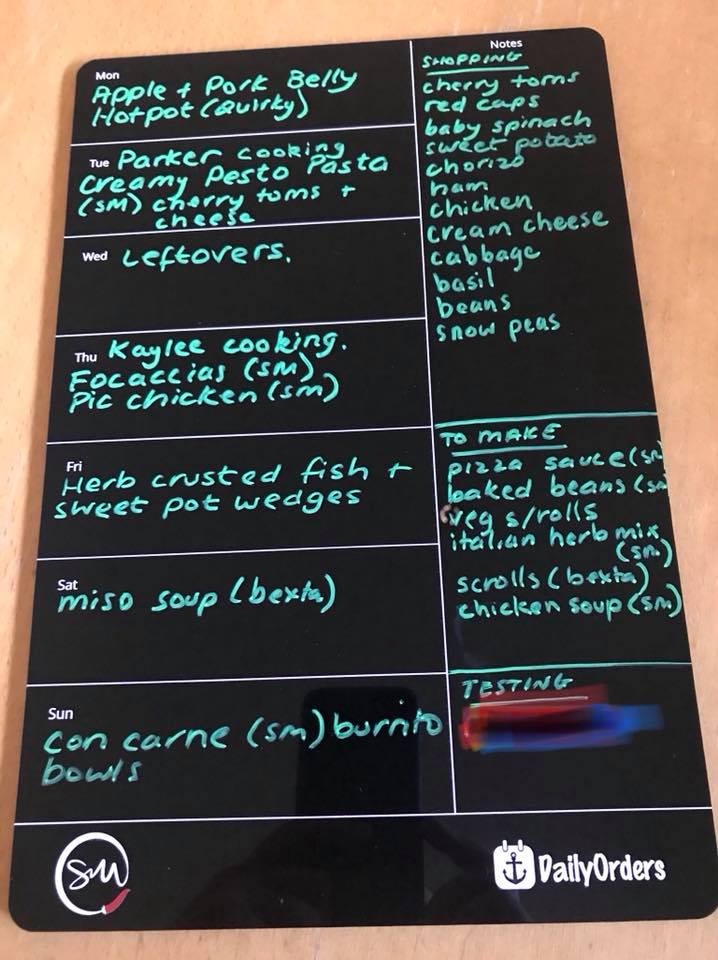 Mon
Apple + Pork Belly
Hotpot (Quirky)
Tue Parker cooking
Creamy Pesto Pasta
(SM) cherry toms +
cheese
Wed Leftovers.
Thu Kaylee cooking.
Focaccias (SM)
Pic chicken (SM)
Fri
Herb crusted fish +
sweet pot wedges
Sat
miso soup (bexta)
Sun
con carne (SM) burrito
bowls
Notes
SHOPPING
cherry toms
red caps
baby spinach
sweet potato
chorizo
ham
chicken
cream cheese
cabbage
basil
beans
snow peas
TO MAKE
pizza sauce (SM
baked beans (SM
veg s/rolls
italian herb mix
(SM)
scrolls (bexta)
chicken soup (SM)
TESTING
SM
DailyOrders